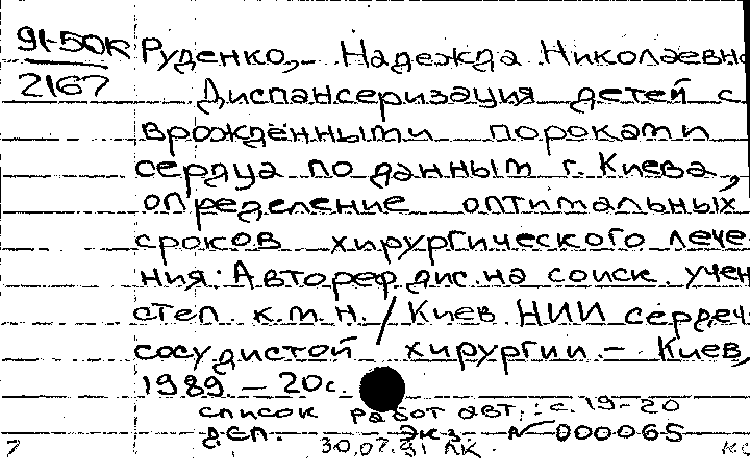 91-50к Руденко, Надежда Николаевна
2167 Диспансеризация детей с
врождёнными пороками
сердца по данным г. Киева,
определение оптимальных
сроков хирургического лече
ния: Автореф. дис. на соиск. учен
степ. к.м.н. / Киев. НИИ сердеч
сосудистой хирургии. - Киев,
1989. - 20с.
список работ авт.: с. 19-20
деп. экз. № 000065
30.07.91